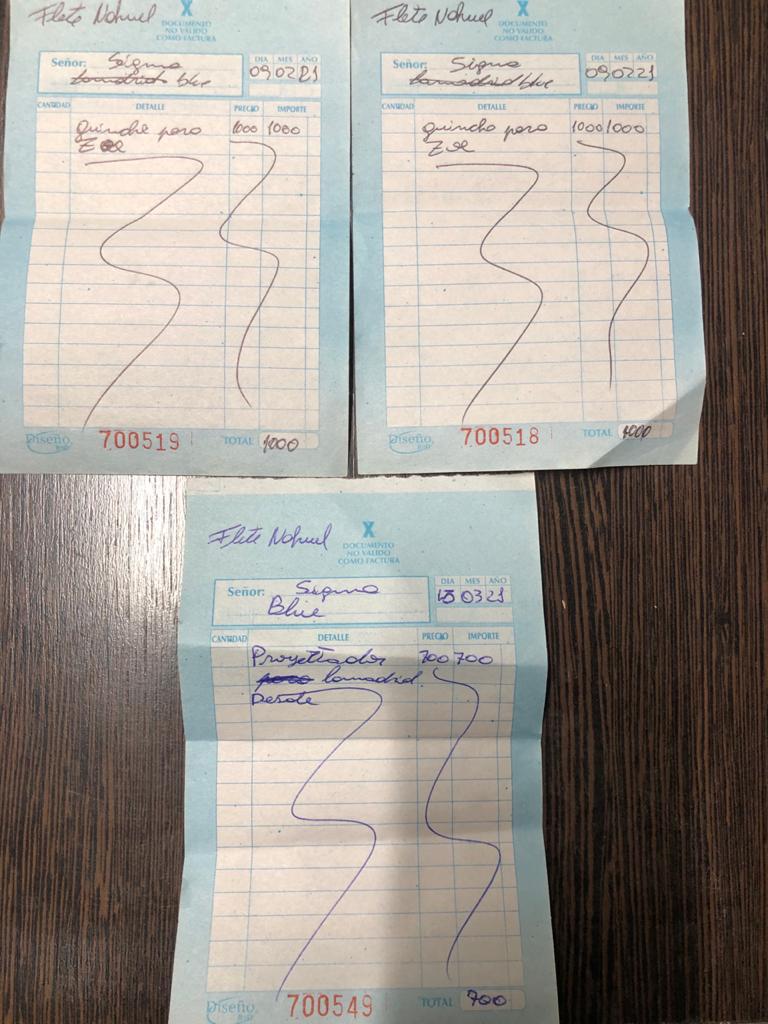 Flete Nahuel
X
DOCUMENTO
NO VALIDO
COMO FACTURA
Señor: Sigma
blue
DIA MES AÑO
09 02 21
CANTIDAD DETALLE PRECIO IMPORTE
quincho para 1000 1000
Zoe
Diseño
700519
TOTAL 1000
Flete Nahuel
X
DOCUMENTO
NO VALIDO
COMO FACTURA
Señor: Sigma
lamadrid blue
DIA MES AÑO
09 02 21
CANTIDAD DETALLE PRECIO IMPORTE
quincho para 1000 1000
Zoe
Diseño
700518
TOTAL 1000
Flete Nahuel
X
DOCUMENTO
NO VALIDO
COMO FACTURA
Señor: Sigma
Blue
DIA MES AÑO
03 21
CANTIDAD DETALLE PRECIO IMPORTE
Proyectador 700 700
lamadrid
Desde
Diseño
700549
TOTAL 700